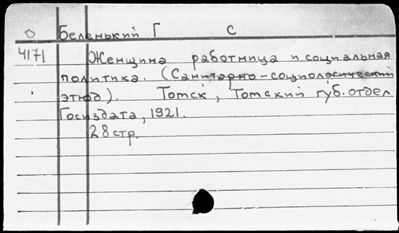 О Беленький Г С
4171 Женщина работница и социальная
политика. (Санитарно-социологический
этюд). Томск, Томский губ. отдел
Госиздата, 1921.
28 стр.